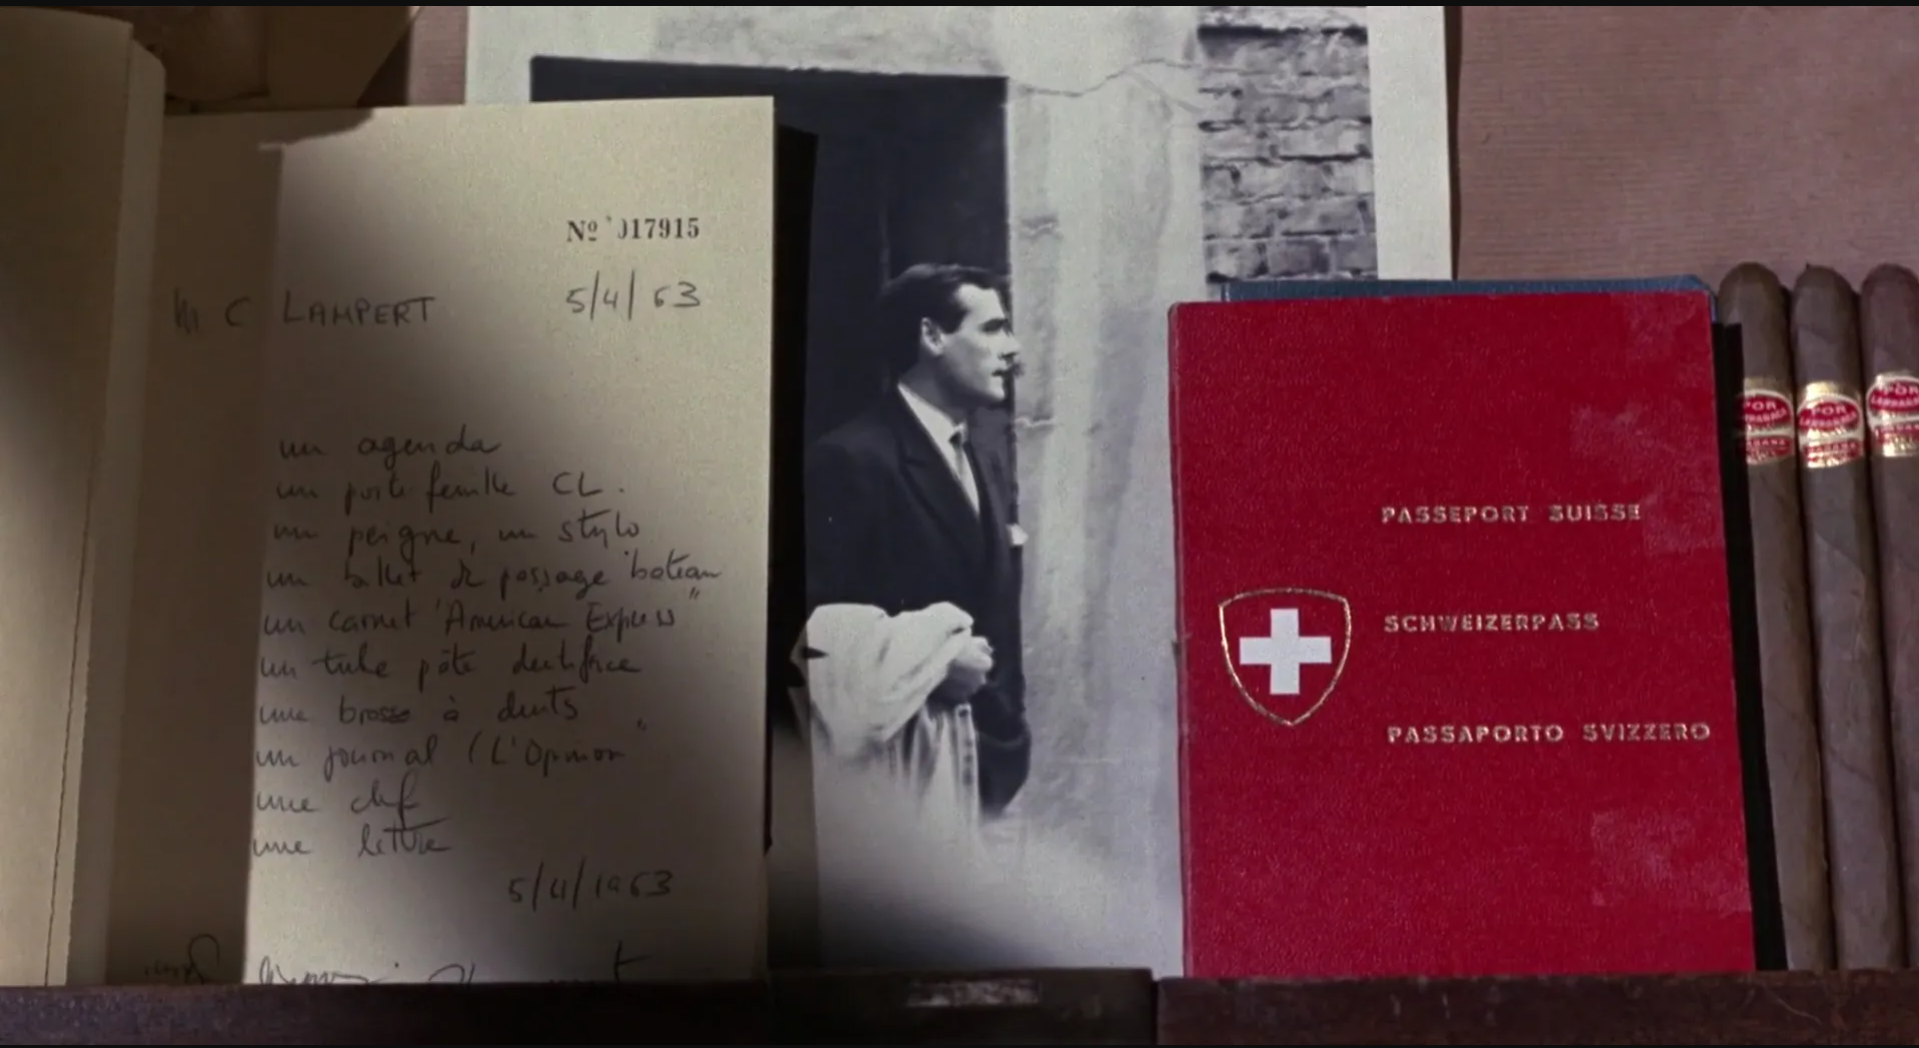 Nº 017915
5/4/63
M C LAMPERT
un agenda
un porte-feuille CL.
un peigne, un stylo
un billet de passage "bateau"
un carnet "American Express"
un tube pâte dentifrice
une brosse à dents
un journal (L'Opinion"
une clef
une lettre
5/4/1963
PASSEPORT SUISSE
SCHWEIZERPASS
PASSAPORTO SVIZZERO
POR LARRAÑAGA
HABANA
POR LARRAÑAGA
HABANA
POR LARRAÑAGA
HABANA